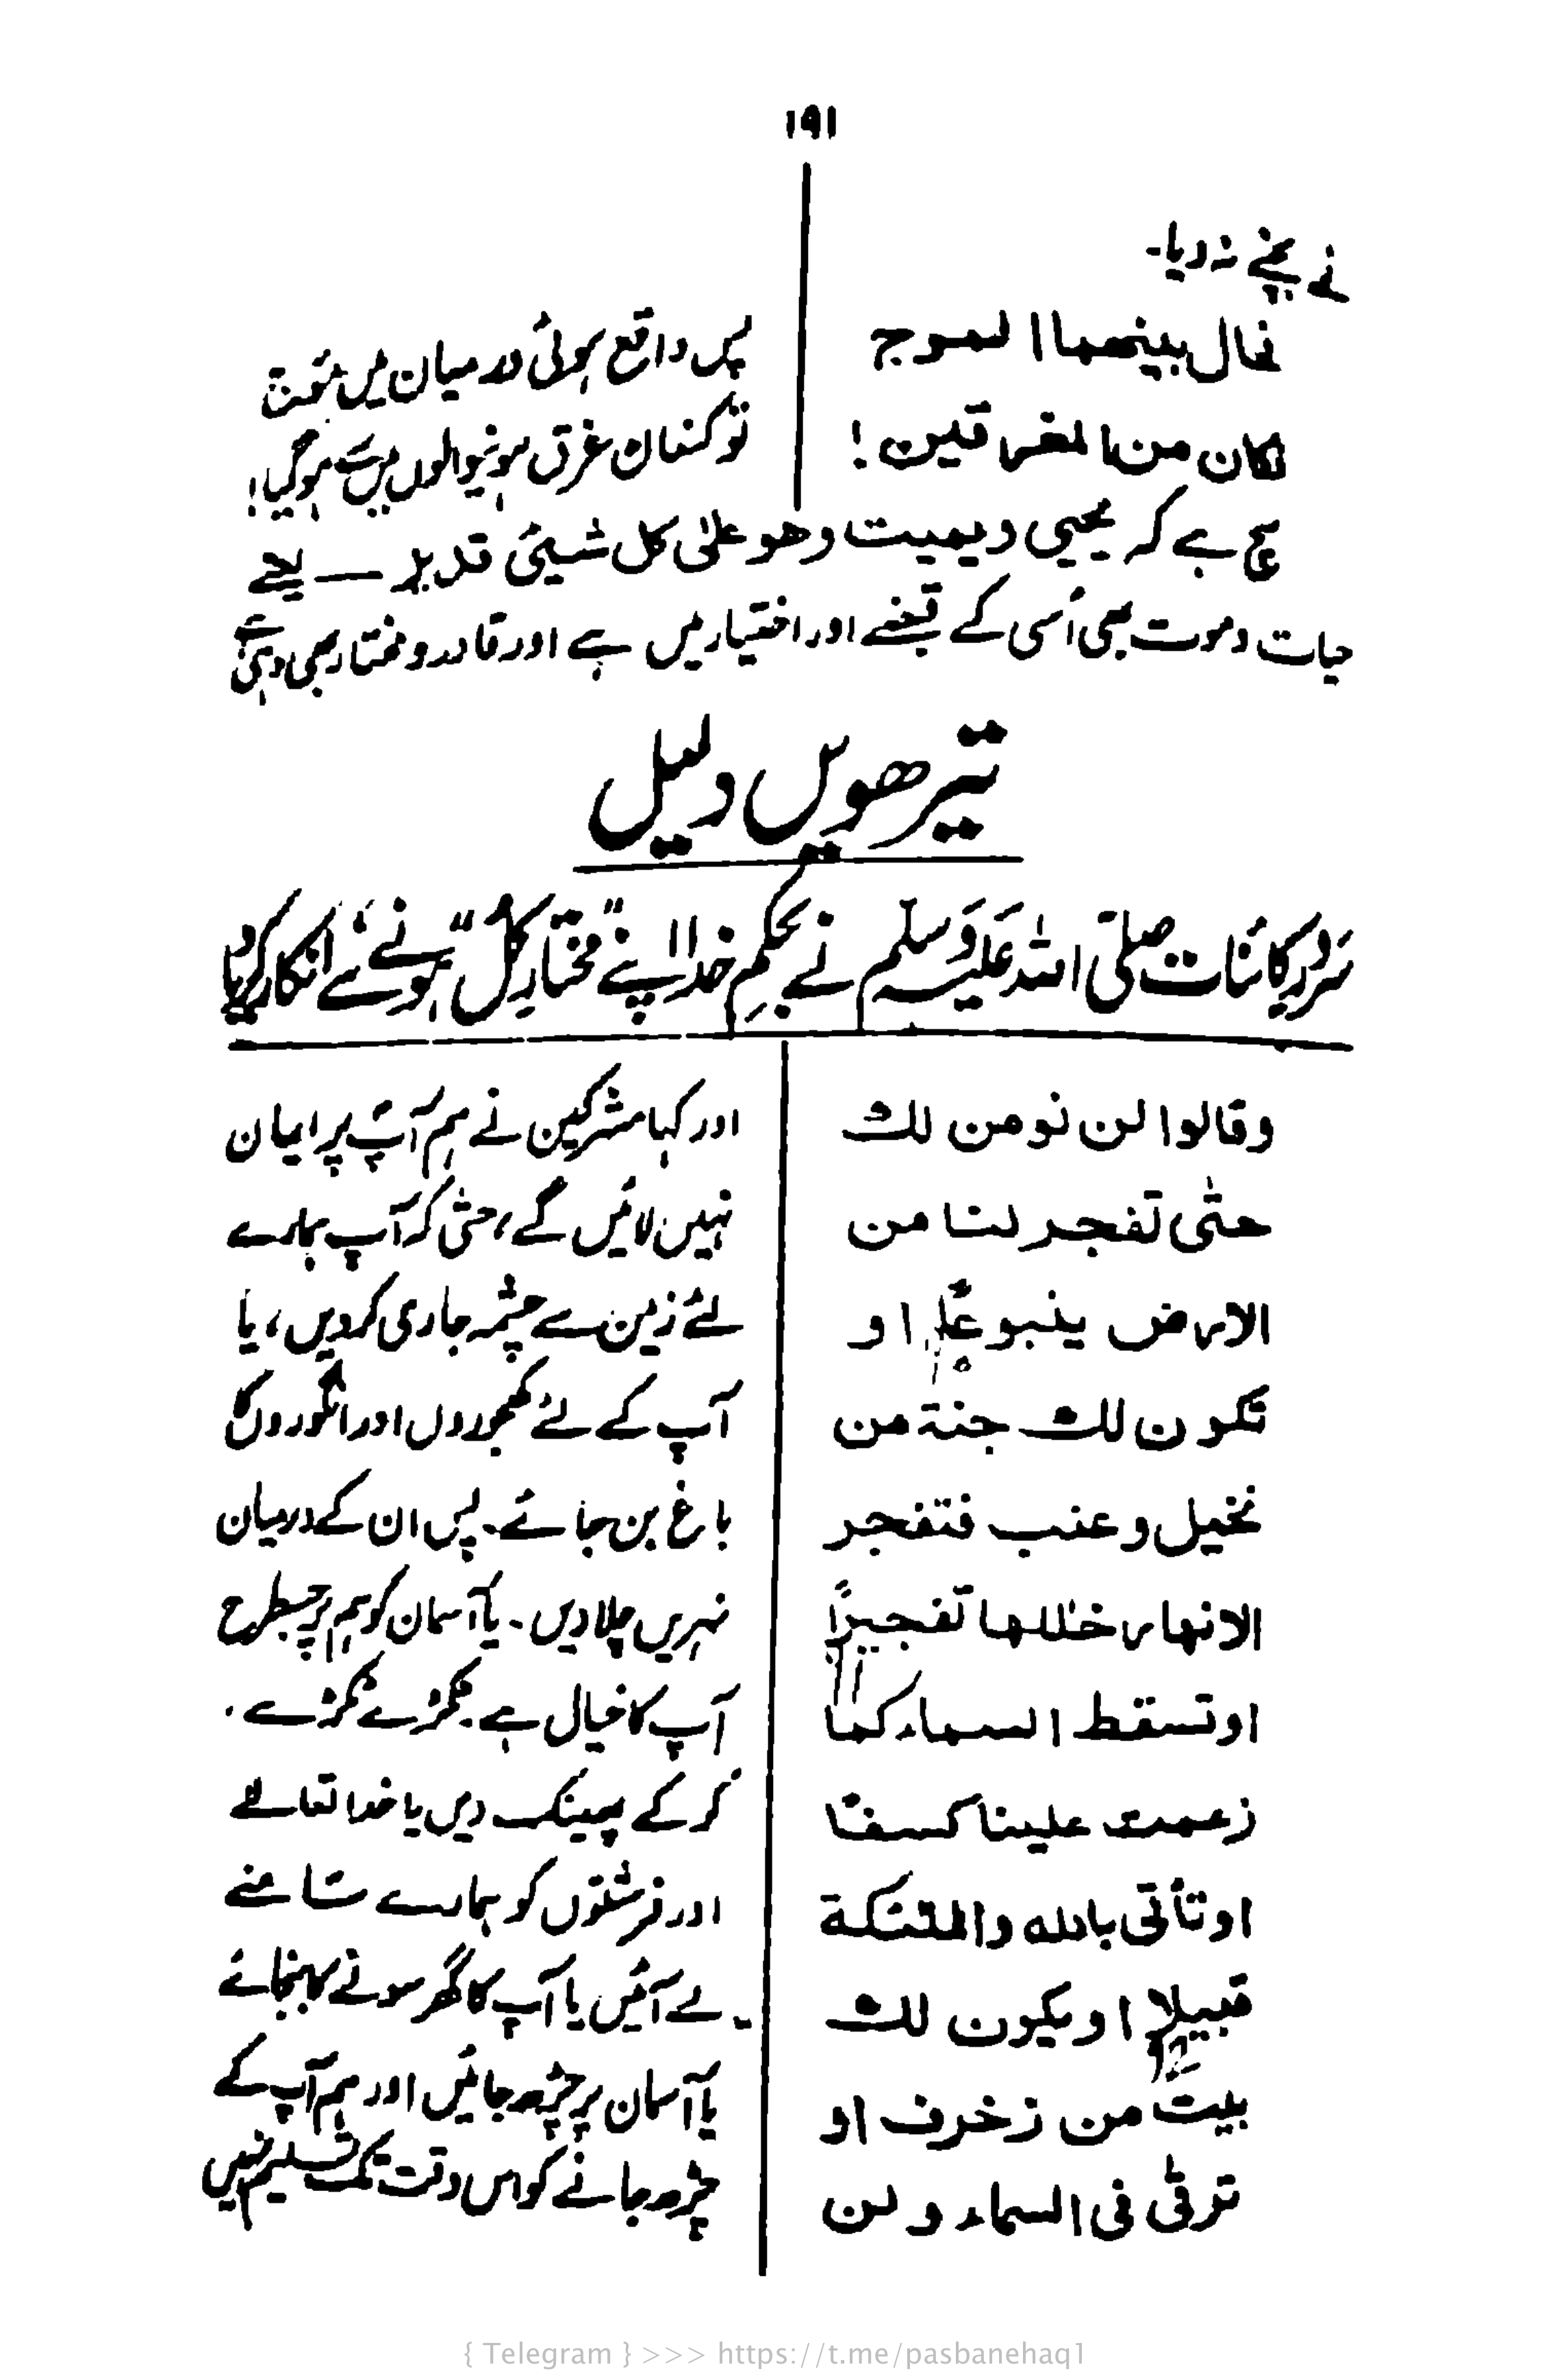 ۱۹۱
نے بچنے نہ دیا۔
فحال بینھما الموج
فکان من المغرقین!
پس واقع ہوئی درمیان میں
تو کنعان غرق ہونیوالوں میں سے ہو گیا!
سچ ہے کہ یحیی ویمیت وھو علیٰ کل شیئی قدیر —
حیات و موت بھی اُسی کے قبضے اور اختیار میں ہے اور قادر و مختار بھی وہی ہے
تیرھویں دلیل
سرورِ کائنات صلی اللہ علیہ وسلم نے بحکمِ خدا اپنے "مختارِ کل" ہونے سے انکار کر دیا
وقالوا لن نومن لک
حتٰی تفجر لنا من
الارض ینبوعًا او
تکون لک جنۃ من
نخیل وعنب فتفجر
الانھار خلٰلھا تفجیرًا
او تسقط السماء کما
زعمت علینا کسفًا
او تأتی باللہ والملٰئکۃ
قبیلا او یکون لک
بیت من زخرف او
ترقٰی فی السماء ولن
اور کہا مشرکین نے ہم آپؐ پر ایمان
نہیں لائیں گے، حتٰی کہ آپ ہمارے
لئے زمین سے چشمہ جاری کر دیں، یا
آپ کے لئے کھجوروں اور انگوروں کا
باغ بن جائے۔ پس ان کے درمیان
نہریں چلا دیں۔ یا آسمان کو ہم پر جسطرح
آپ کا خیال ہے۔ ٹکڑے ٹکڑے
کر کے پھینک دیں یا خدا تعالےٰ
اور فرشتوں کو ہمارے سامنے
لے آئیں یا آپ کا گھر سونے کا بنجائے
یا آسمان پر چڑھ جائیں اور ہم آپ کے
چڑھ جانے کو اس وقت تک تسلیم نہیں
{ Telegram } >>> https://t.me/pasbanehaq1